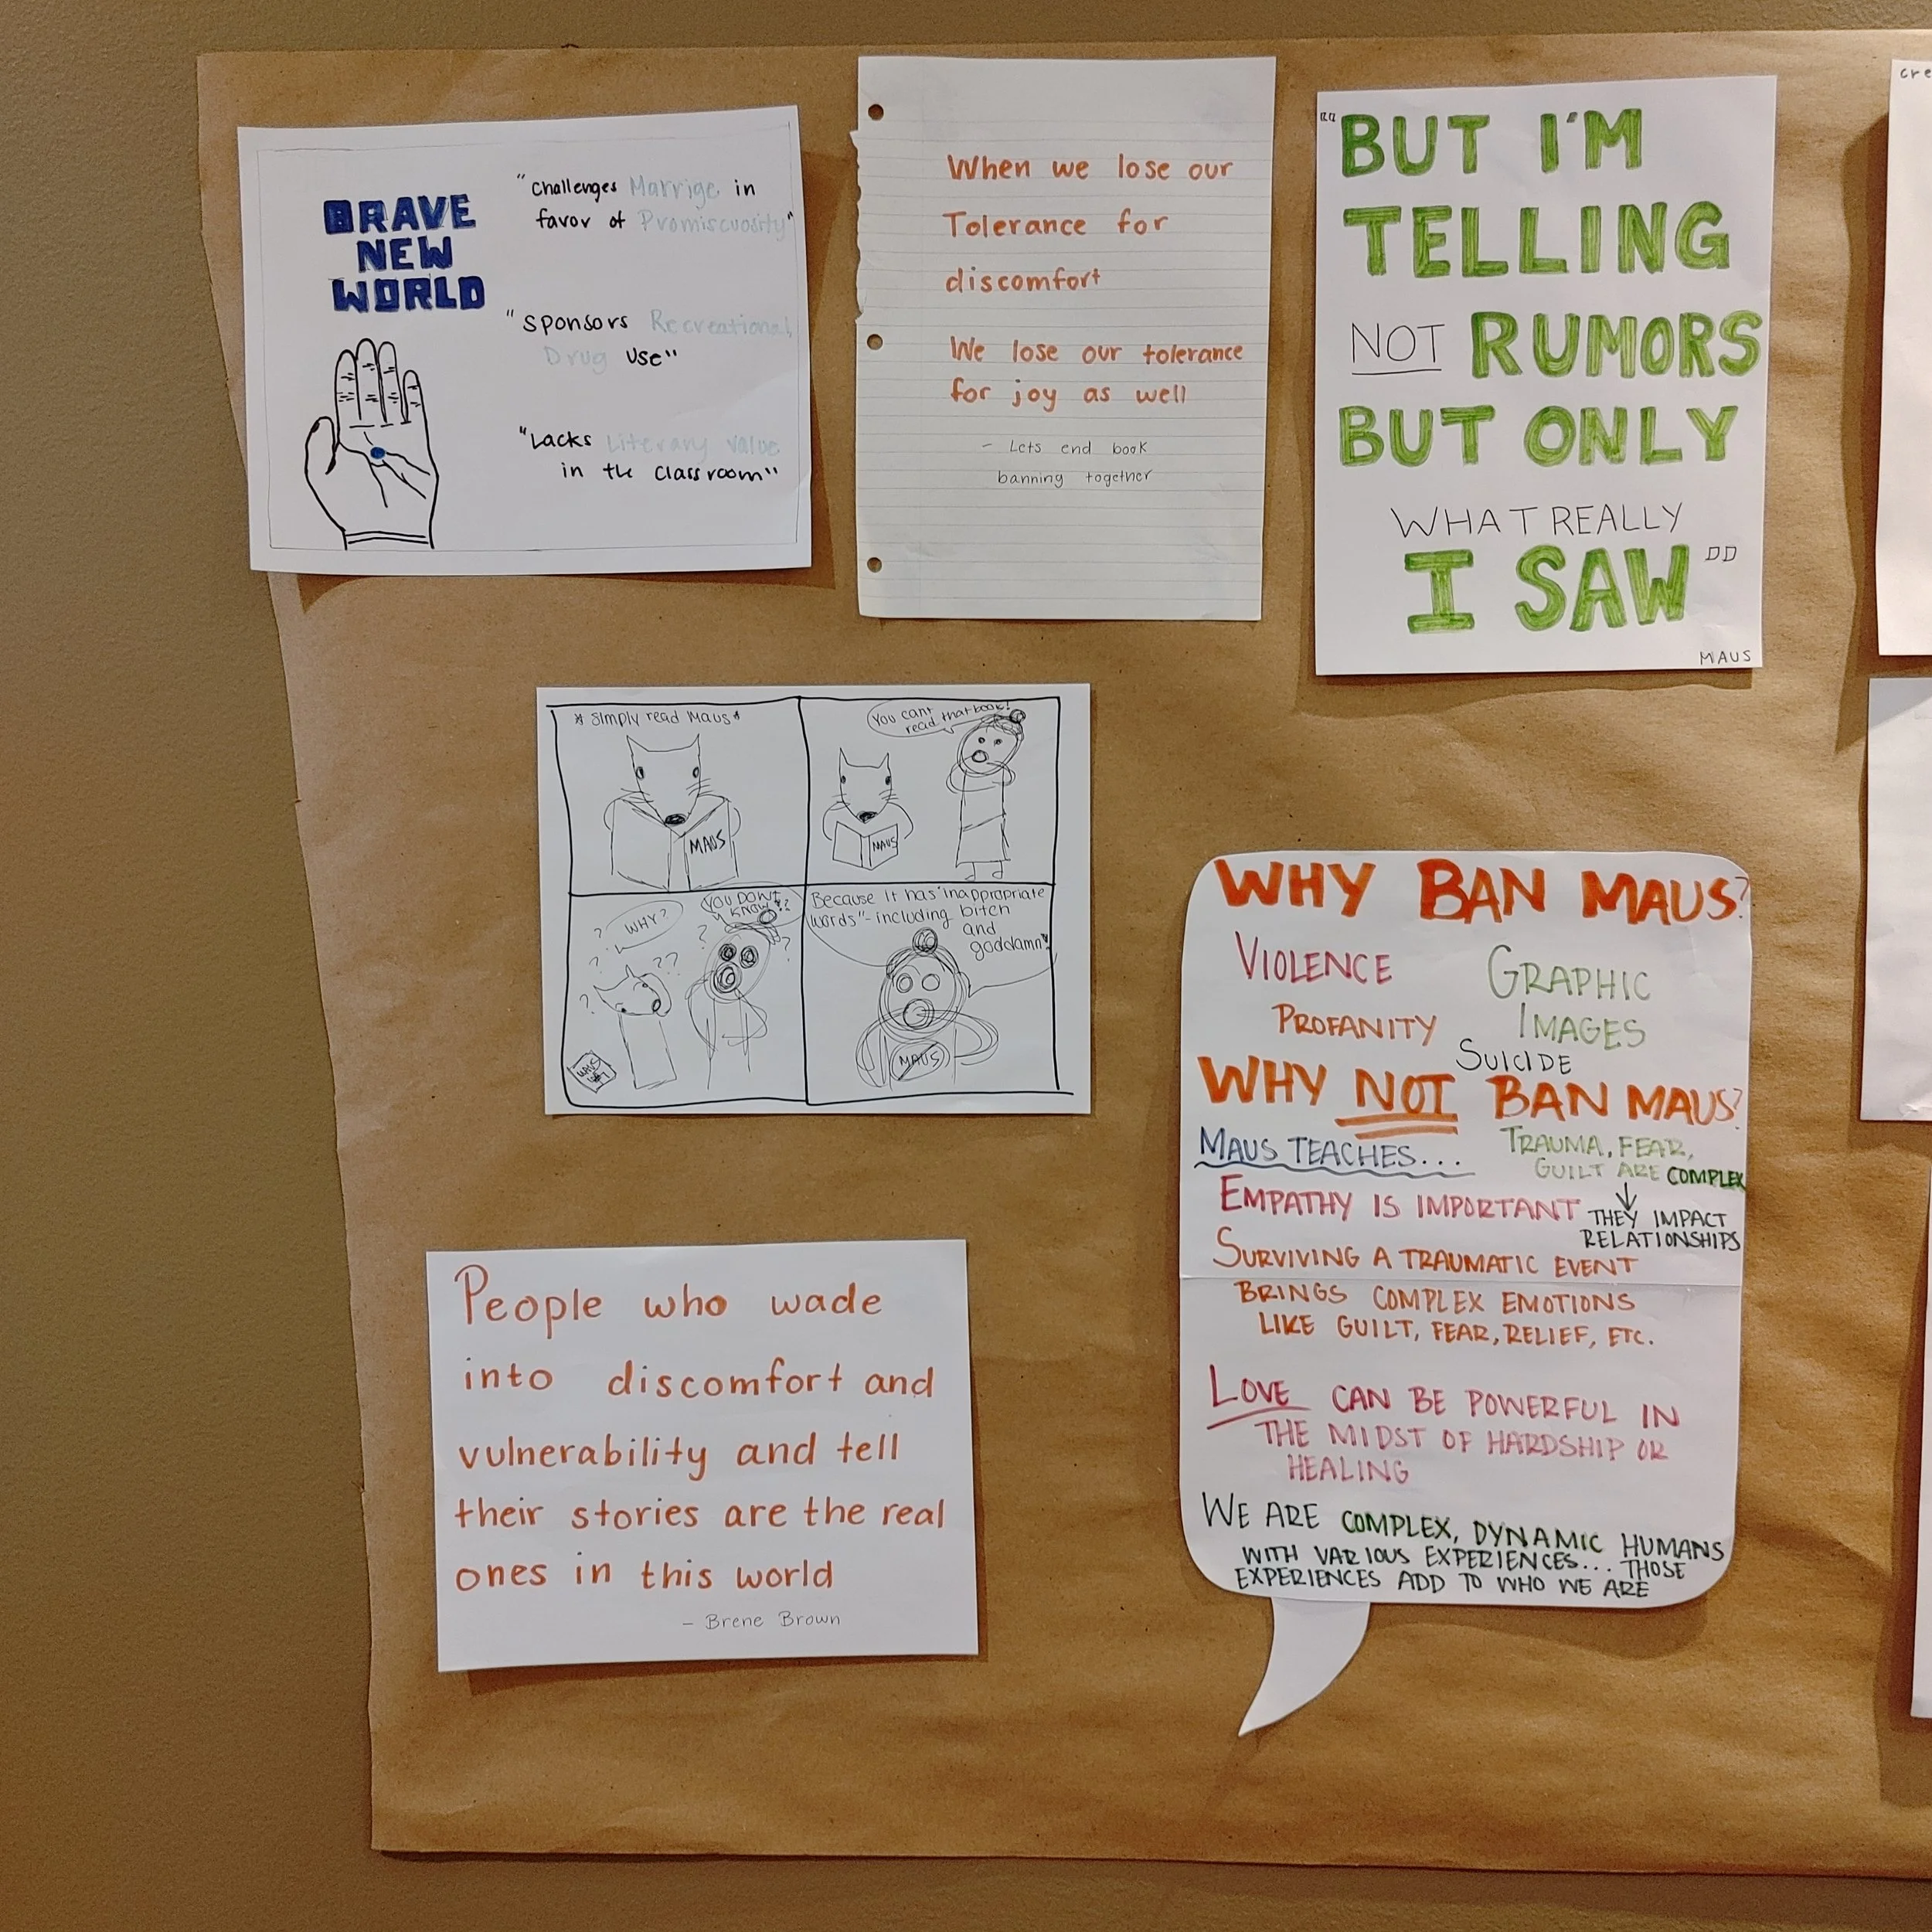 BRAVE
NEW
WORLD
"Challenges Marrige in
favor of Promiscuosity"
"Sponsors Recreational
Drug Use"
"Lacks Literary Value
in the classroom"
When we lose our
Tolerance for
discomfort
We lose our tolerance
for joy as well
- Lets end book
banning together
"BUT I'M
TELLING
NOT RUMORS
BUT ONLY
WHAT REALLY
I SAW"
MAUS
cre
* Simply read Maus*
MAUS
You cant
read that book!
MAUS
WHY?
YOU DON'T
KNOW??
MAUS
Because it has "inappropriate
words"- including bitch
and
goddamn"
MAUS
WHY BAN MAUS?
VIOLENCE
GRAPHIC
IMAGES
PROFANITY
SUICIDE
WHY NOT BAN MAUS?
MAUS TEACHES...
TRAUMA, FEAR,
GUILT ARE COMPLEX
THEY IMPACT
RELATIONSHIPS
EMPATHY IS IMPORTANT
SURVIVING A TRAUMATIC EVENT
BRINGS COMPLEX EMOTIONS
LIKE GUILT, FEAR, RELIEF, ETC.
LOVE CAN BE POWERFUL IN
THE MIDST OF HARDSHIP OR
HEALING
WE ARE COMPLEX, DYNAMIC HUMANS
WITH VARIOUS EXPERIENCES... THOSE
EXPERIENCES ADD TO WHO WE ARE
People who wade
into discomfort and
vulnerability and tell
their stories are the real
ones in this world
- Brene Brown